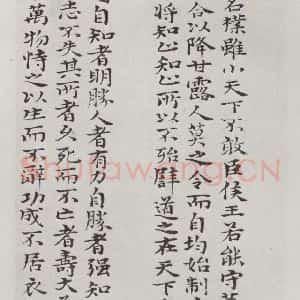 名樸雖小天下不敢臣侯王若能守
合以降甘露人莫之令而自均始制
將知止知止所以不殆譬道之在天下
自知者明勝人者有力自勝者强知
志不失其所者久死而不亡者壽大
萬物恃之以生而不辭功成不居衣
Shufawang.CN